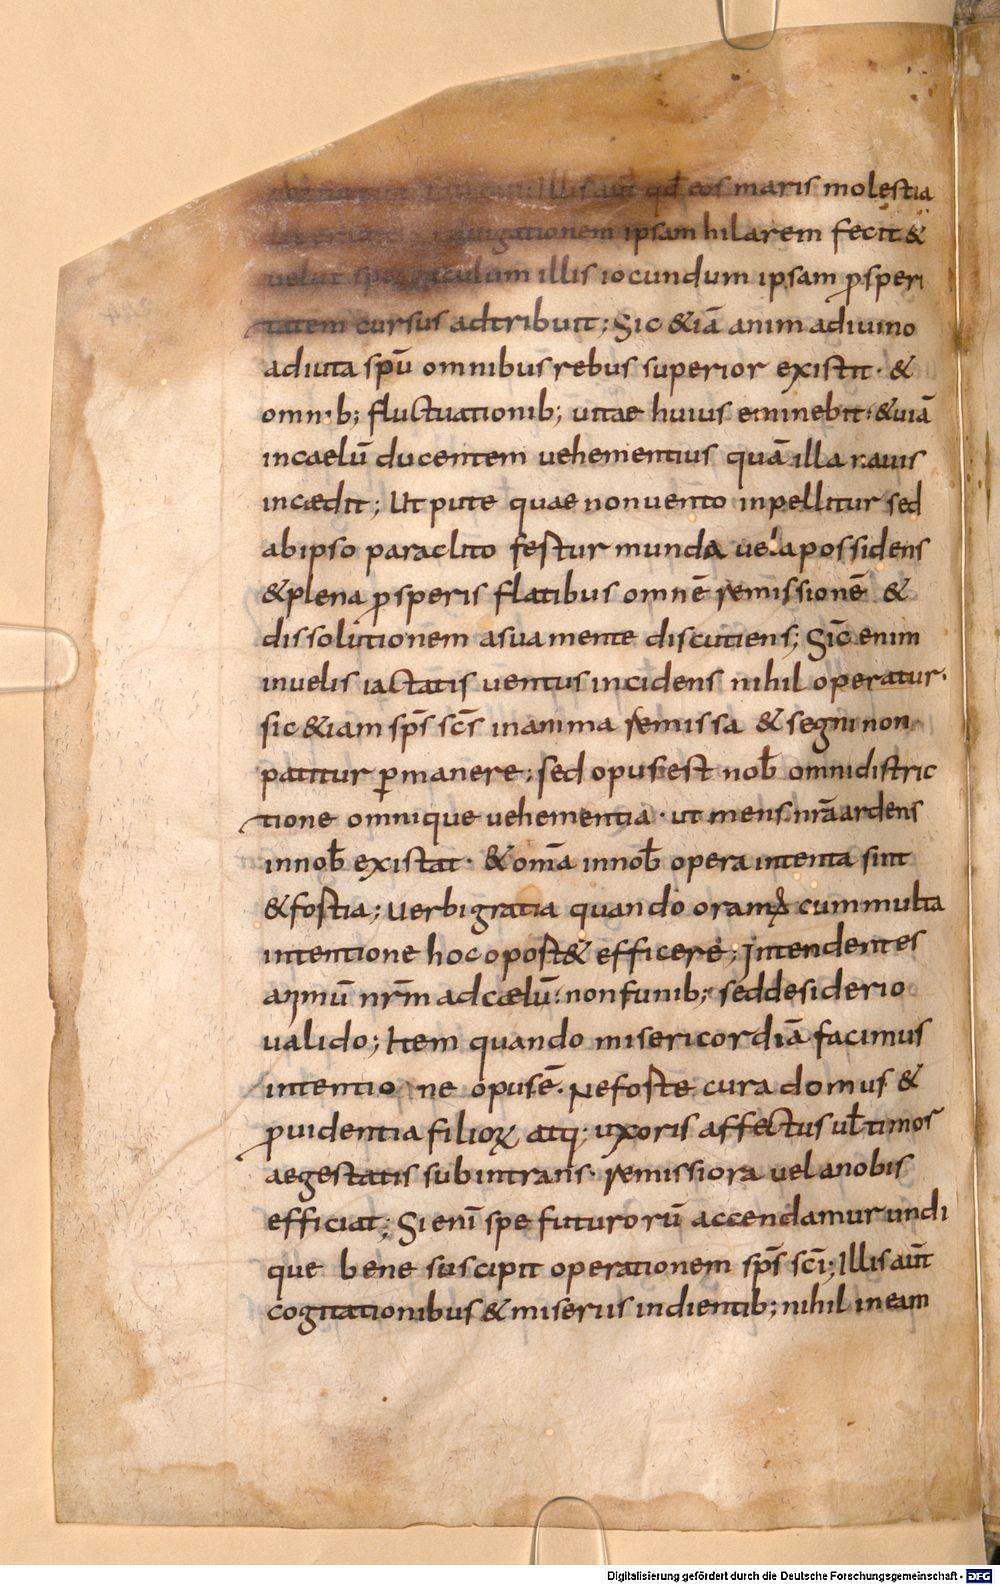 illis aut̄ qđ eos maris molestia
nauigationem ipsam hilarem fecit &
uelut spectaculum illis iocundum ipsam ꝓsperi
tatem cursus adtribuit; Sic &iā anim adiuino
adiuta spū omnibus rebus superior existit· &
omnib; fluctuationib; uitae huius eminebit· & uiā
incaelū ducentem uehementius quā illa nauis
incædit; Ut pute quae non uento inpellitur sed
ab ipso paraclito festur munda uela possidens
& plena ꝓsperis flatibus omnē remissionē &
dissolutionem asua mente discutiens; Sic̄ enim
inuelis iactatis uentus incidens nihil operatur·
sic &iam sps̄ scs̄ inanima remissa & segni non
patitur ꝑmanere; sed opus est nob̄ omni distric
tione omnique uehementia· ut mens nrā ardens
innob̄ existat· & omā innob̄ opera intenta sint
& fostia; Uerbi gratia quando oramꝰ cum multa
intentione hoc opost& efficere; Intendentes
animū nrm̄ ad cælū· non funib; sed desiderio
ualido; Item quando misericordiā facimus
intentio ne opus ē· Ne foste cura domus &
ꝓuidentia filioꝝ atq; uxoris affectus ul̄timos
aegestatis subintrans· remissiora uel anobis
efficiat; Si eni spe futurorū accendamur undi
que bene suscipit operationem sps̄ scī; Illis aut̄
cogitationibus & miseriis indientib; nihil in eam